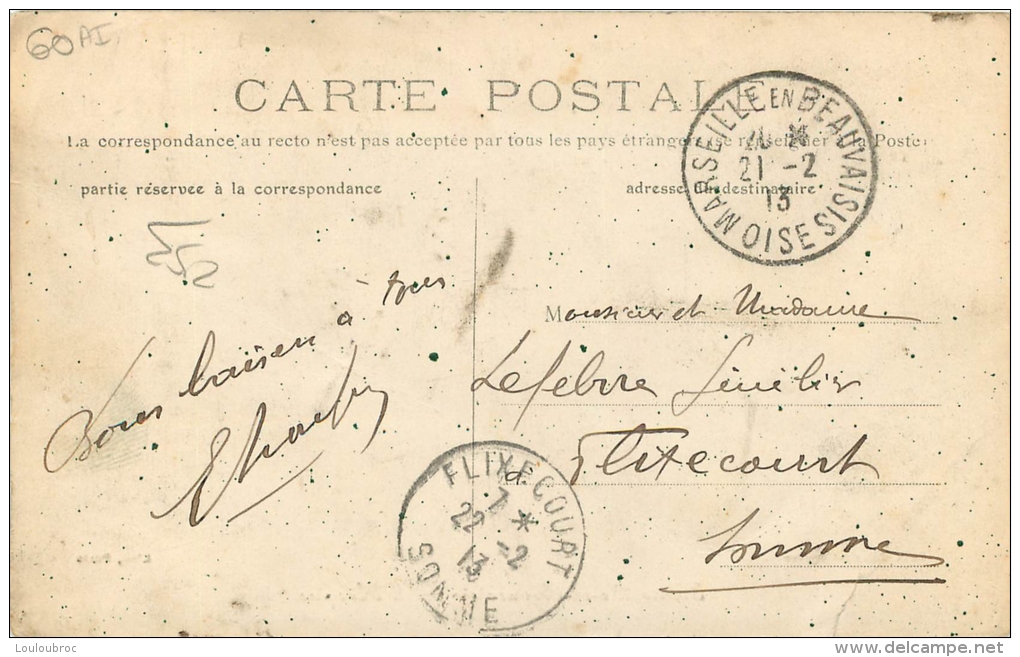 60 AI
CARTE POSTALE
La correspondance au recto n'est pas acceptée par tous les pays étrangers
partie réservée à la correspondance
adresse du destinataire
MARSEILLE EN BEAUVAISIS
21 -2
13
OISE
Bons baisers à tous
Monsieur et Madame
Lefebvre
à Flixecourt
Somme
FLIXECOURT
7 *
22 -2
13
SOMME
Louloubroc
www.delcampe.net